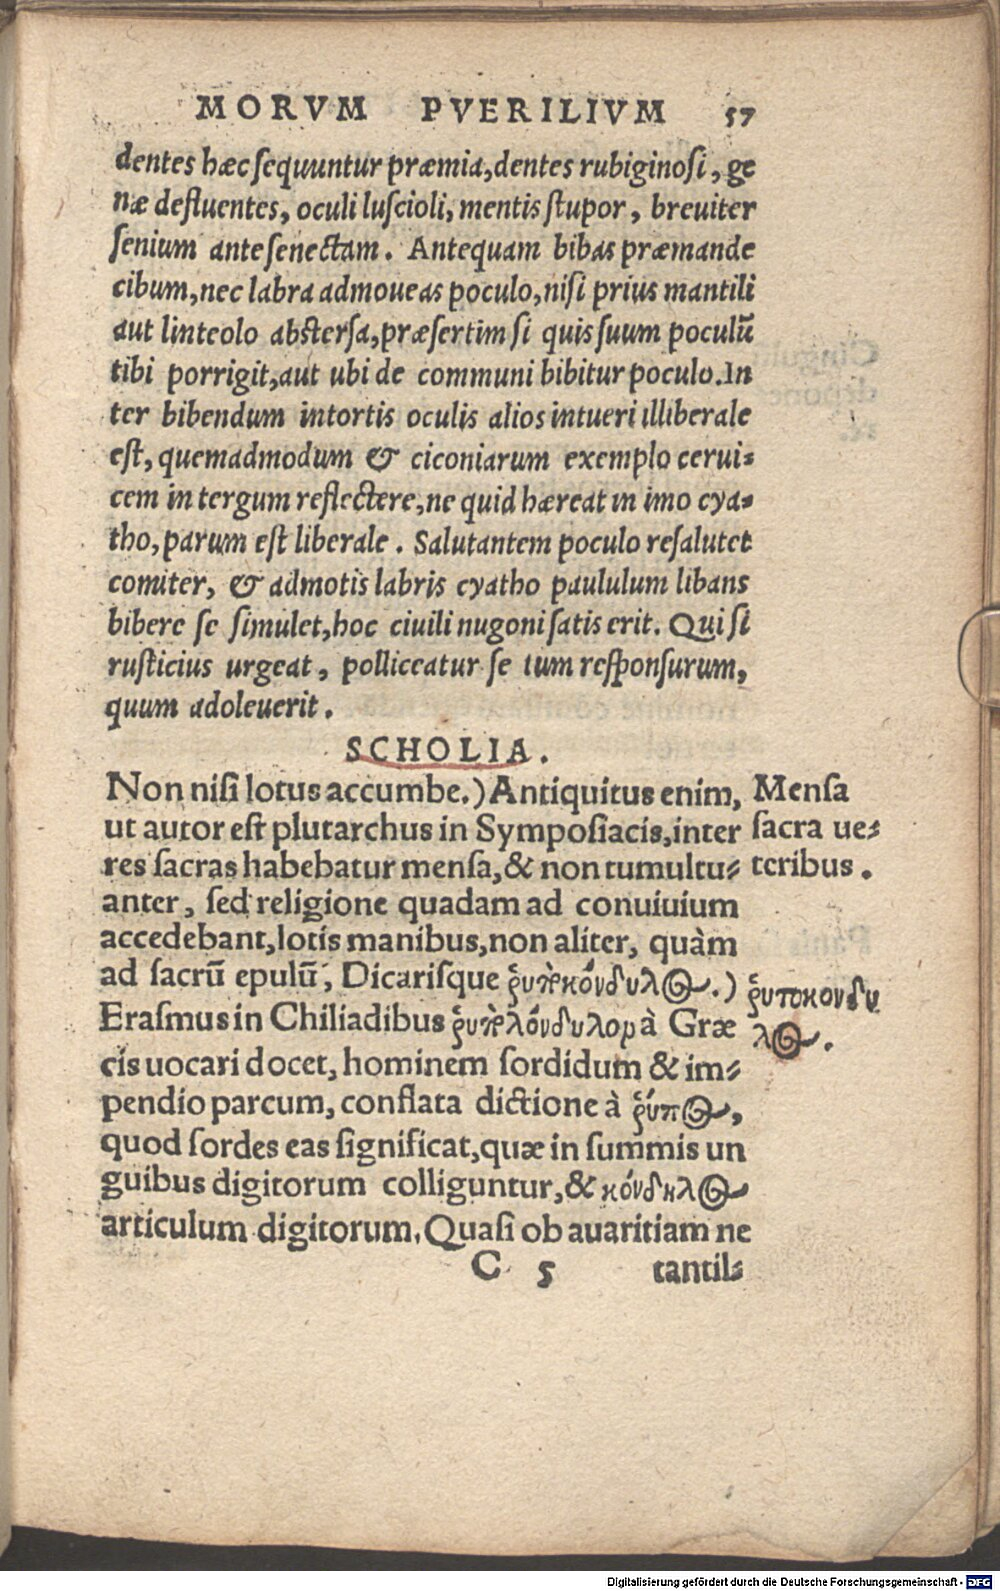 MORVM PVERILIVM 57
dentes hæc sequuntur præmia, dentes rubiginosi, ge
næ defluentes, oculi luscioli, mentis stupor, breuiter
senium ante senectam. Antequam bibas præmande
cibum, nec labra admoueas poculo, nisi prius mantili
aut linteolo abstersa, præsertim si quis suum poculū
tibi porrigit, aut ubi de communi bibitur poculo. In
ter bibendum intortis oculis alios intueri illiberale
est, quemadmodum & ciconiarum exemplo cerui⸗
cem in tergum reflectere, ne quid hæreat in imo cya⸗
tho, parum est liberale. Salutantem poculo resalutet
comiter, & admotis labris cyatho paululum libans
bibere se simulet, hoc ciuili nugoni satis erit. Qui si
rusticius urgeat, polliceatur se tum responsurum,
quum adoleuerit.
SCHOLIA.
Non nisi lotus accumbe.) Antiquitus enim,
ut autor est plutarchus in Symposiacis, inter
res sacras habebatur mensa, & non tumultu⸗
anter, sed religione quadam ad conuiuium
accedebant, lotis manibus, non aliter, quàm
ad sacrū epulū, Dicarisque ῥυποκόνδυλος.)
Erasmus in Chiliadibus ῥυπολόνδυλομ à Græ
cis uocari docet, hominem sordidum & im⸗
pendio parcum, conflata dictione à ῥύπος,
quod sordes eas significat, quæ in summis un
guibus digitorum colliguntur, & κόνδκλος
articulum digitorum, Quasi ob auaritiam ne
C 5 tantil⸗
Mensa
sacra ue⸗
teribus.
ῥυποκονδυ
λος.
Digitalisierung gefördert durch die Deutsche Forschungsgemeinschaft - DFG